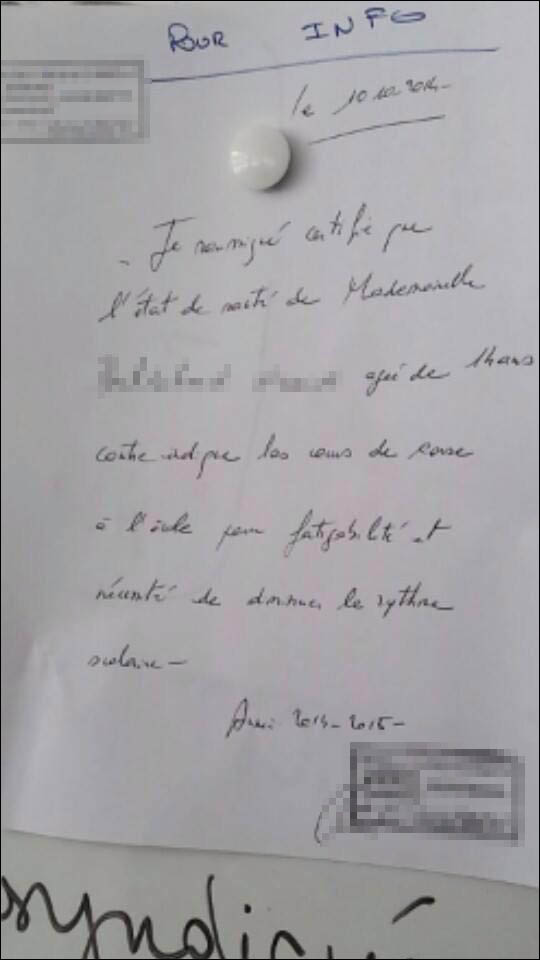 POUR INFO
le 10.10.2014-
- Je soussigné certifie que
l'état de santé de Mademoiselle
agée de 14 ans
contre indique les cours de corse
à l'école pour fatigabilité et
nécessité de diminuer le rythme
scolaire-
Année 2014-2015-
syndiqué